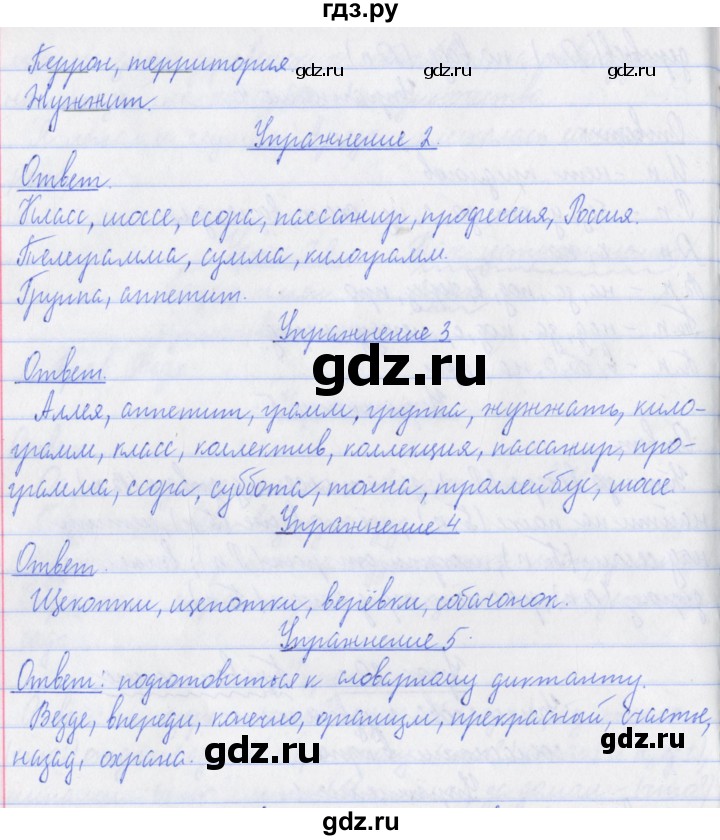 гдз.ру
Перрон, территория.
gdz.ru gdz.ru gdz.ru
Жужжит.
Упражнение 2.
Ответ.
Класс, шоссе, ссора, пассажир, профессия, Россия.
Телеграмма, сумма, килограмм.
Группа, аппетит.
Упражнение 3
gdz.ru
Ответ.
Аллея, аппетит, грамм, группа, жужжать, кило-
грамм, класс, коллектив, коллекция, пассажир, про-
грамма, ссора, суббота, тонна, троллейбус, шоссе.
Упражнение 4
Ответ.
Щекотки, щепотки, верёвки, собачонок.
Упражнение 5.
Ответ: подготовиться к словарному диктанту.
Везде, впереди, конечно, организм, прекрасный, счастье,
gdz.ru gdz.ru
назад, охрана.
gdz.ru